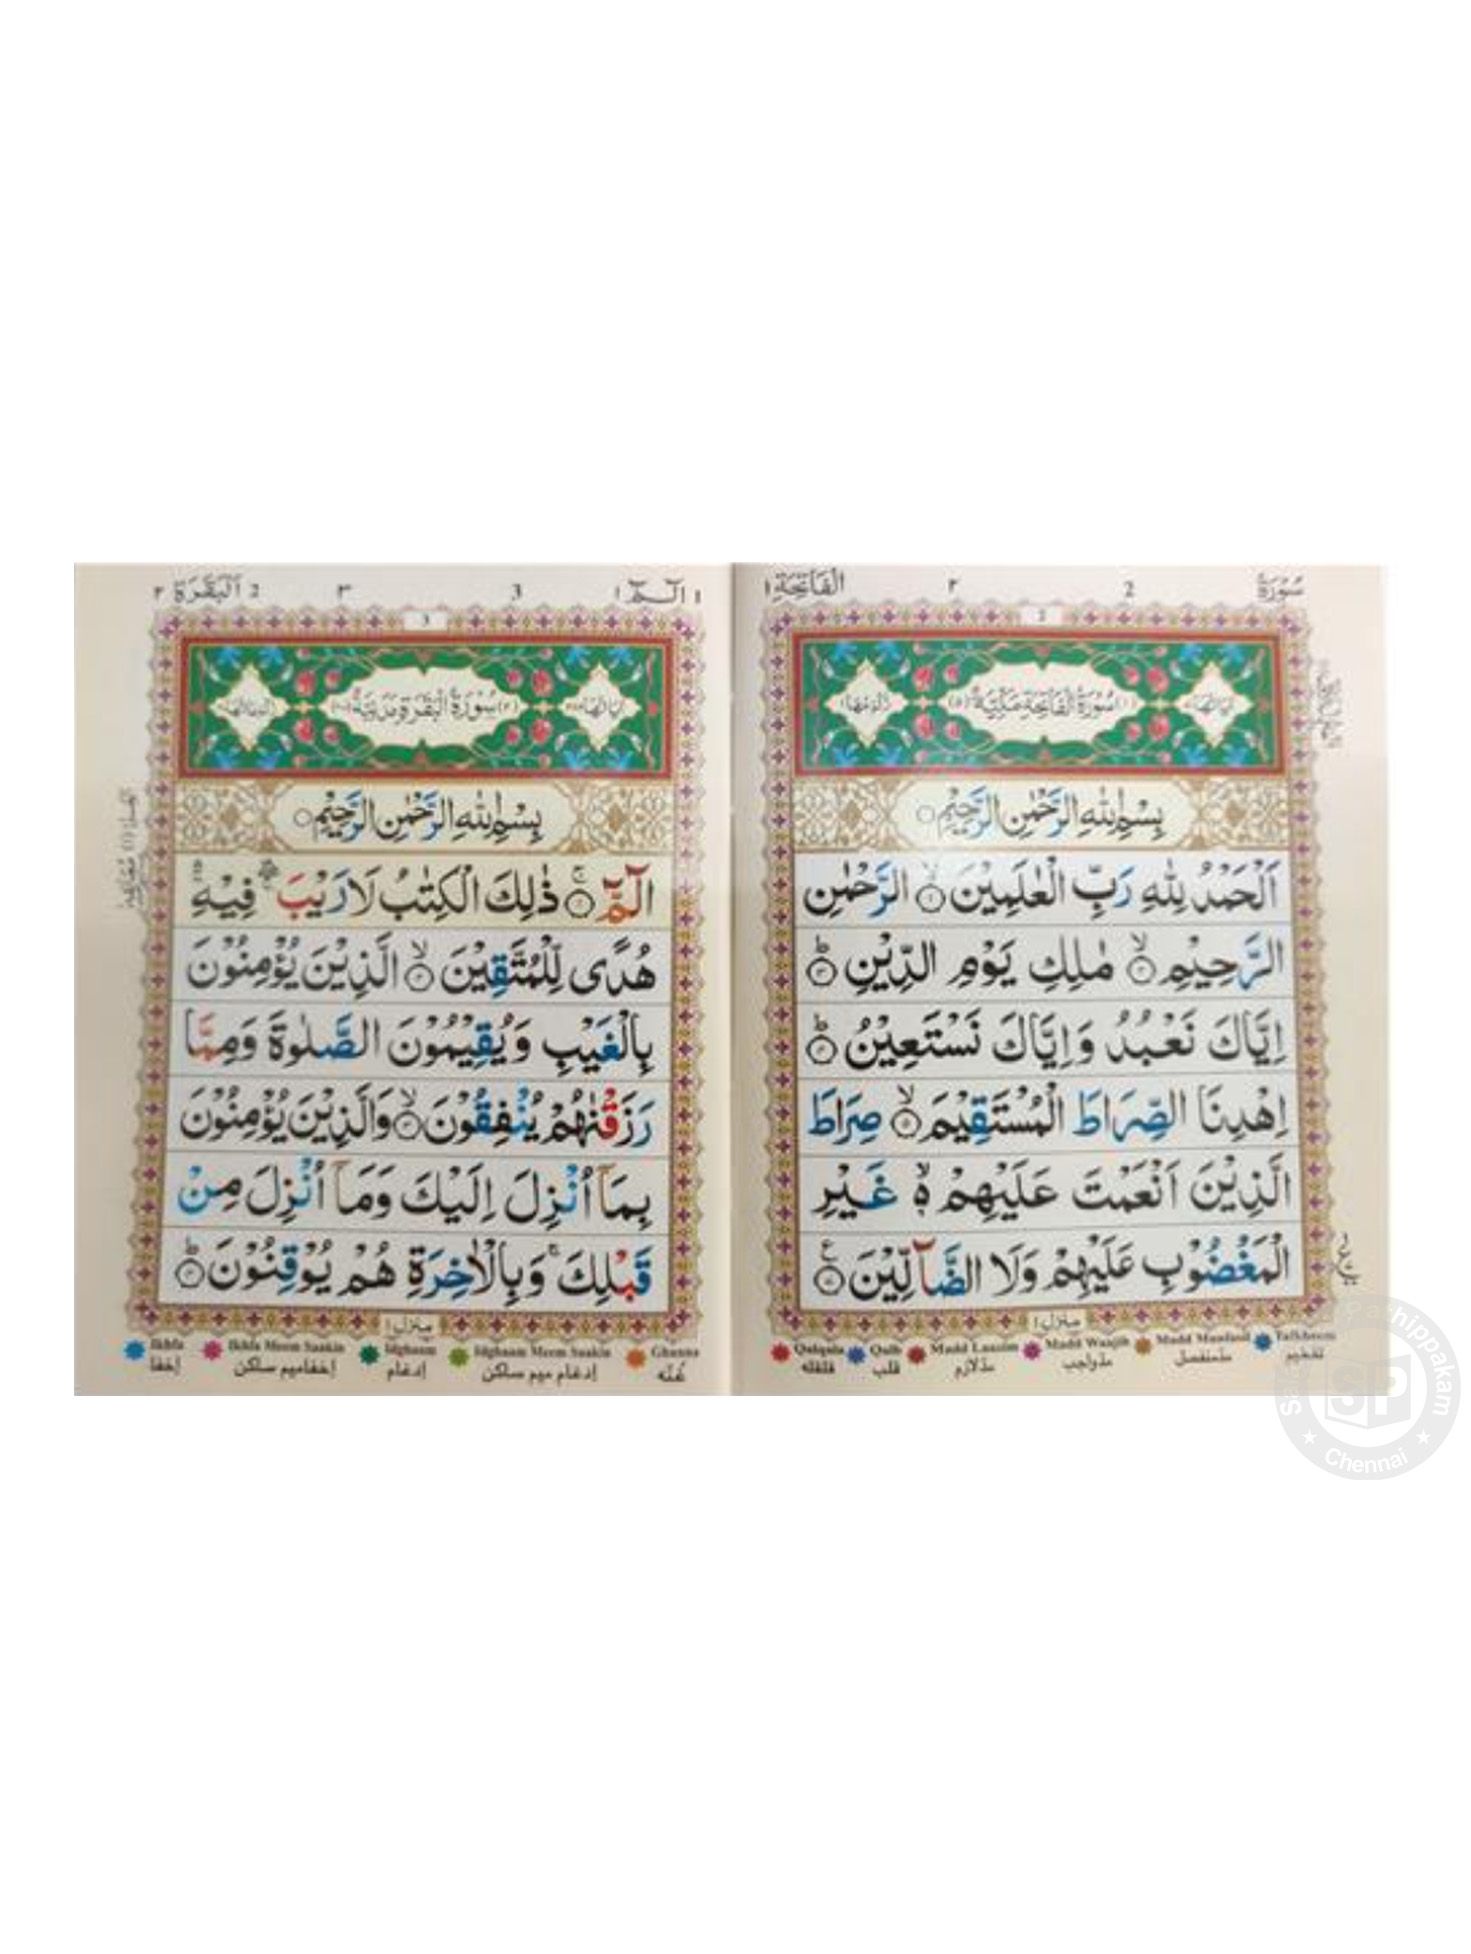 سُوْرَةُ 2 ٢ الْفَاتِحَة ١
2
سُوْرَةُ الْفَاتِحَةِ مَكِّيَّةٌ (٥)
بِسْمِ اللّٰهِ الرَّحْمٰنِ الرَّحِيْمِ
اَلْحَمْدُ لِلّٰهِ رَبِّ الْعٰلَمِيْنَ ۙ الرَّحْمٰنِ
الرَّحِيْمِ ۙ مٰلِكِ يَوْمِ الدِّيْنِ ؕ
اِيَّاكَ نَعْبُدُ وَاِيَّاكَ نَسْتَعِيْنُ ؕ
اِهْدِنَا الصِّرَاطَ الْمُسْتَقِيْمَ ۙ صِرَاطَ
الَّذِيْنَ اَنْعَمْتَ عَلَيْهِمْ ۙ غَيْرِ
الْمَغْضُوْبِ عَلَيْهِمْ وَلَا الضَّآلِّيْنَ
منزل ١
Qalqala Qalb Madd Laazim Madd Waajib Madd Munfasil Tafkheem
قلقله قلب مدلازم مدواجب مدمنفصل تفخيم
١ الٓـمّٓ ١ 3 ٣ 2 اَلْبَقَرَة ٢
3
(٢) سُوْرَةُ الْبَقَرَةِ مَدَنِيَّةٌ
بِسْمِ اللّٰهِ الرَّحْمٰنِ الرَّحِيْمِ
الٓمّٓ ۚ ذٰلِكَ الْكِتٰبُ لَا رَيْبَ ۛ فِيْهِ ۛ
هُدًى لِّلْمُتَّقِيْنَ ۙ الَّذِيْنَ يُؤْمِنُوْنَ
بِالْغَيْبِ وَيُقِيْمُوْنَ الصَّلٰوةَ وَمِمَّا
رَزَقْنٰهُمْ يُنْفِقُوْنَ ۙ وَالَّذِيْنَ يُؤْمِنُوْنَ
بِمَاۤ اُنْزِلَ اِلَيْكَ وَمَاۤ اُنْزِلَ مِنْ
قَبْلِكَ ۚ وَبِالْاٰخِرَةِ هُمْ يُوْقِنُوْنَ ؕ
منزل ١
Ikhfa Ikhfa Meem Saakin Idghaam Idghaam Meem Saakin Ghunna
إخفا إخفاميم ساكن إدغام إدغام ميم ساكن غنّه
SP
Chennai